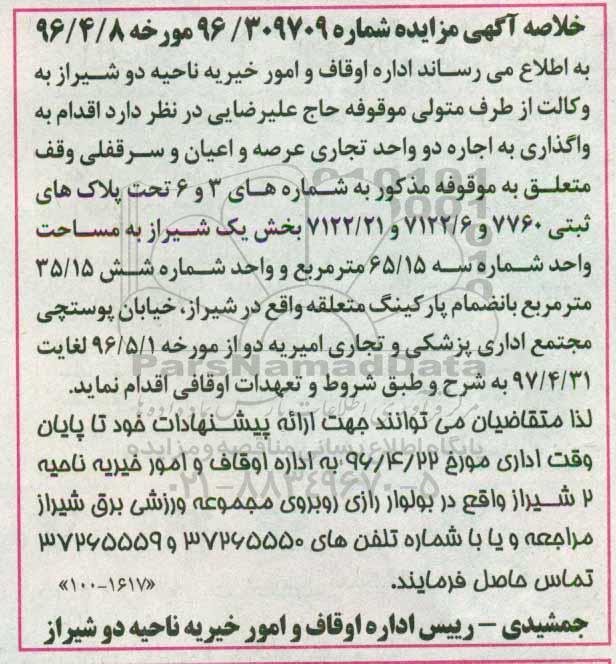 خلاصه آگهی مزایده شماره ۹۶/۳۰۹۷۰۹ مورخه ۹۶/۴/۸
به اطلاع می رساند اداره اوقاف و امور خیریه ناحیه دو شیراز به
وکالت از طرف متولی موقوفه حاج علیرضایی در نظر دارد اقدام به
واگذاری به اجاره دو واحد تجاری عرصه و اعیان و سرقفلی وقف
متعلق به موقوفه مذکور به شماره های ۳ و ۶ تحت پلاک های
ثبتی ۷۷۶۰ و ۷۱۲۲/۶ و ۷۱۲۲/۲۱ بخش یک شیراز به مساحت
واحد شماره سه ۶۵/۱۵ مترمربع و واحد شماره شش ۳۵/۱۵
مترمربع بانضمام پارکینگ متعلقه واقع در شیراز، خیابان پوستچی
مجتمع اداری پزشکی و تجاری امیریه دو از مورخه ۹۶/۵/۱ لغایت
۹۷/۴/۳۱ به شرح و طبق شروط و تعهدات اوقافی اقدام نماید.
لذا متقاضیان می توانند جهت ارائه پیشنهادات خود تا پایان
وقت اداری مورخ ۹۶/۴/۲۲ به اداره اوقاف و امور خیریه ناحیه
۲ شیراز واقع در بولوار رازی روبروی مجموعه ورزشی برق شیراز
مراجعه و یا با شماره تلفن های ۳۷۲۶۵۵۵۰ و ۳۷۲۶۵۵۵۹
تماس حاصل فرمایند.
«۱۰۰-۱۶۱۷»
جمشیدی – رییس اداره اوقاف و امور خیریه ناحیه دو شیراز
ParsNamadData
پایگاه اطلاع رسانی مناقصه و مزایده
۰۲۱-۸۸۳۴۹۶۷۰-۵